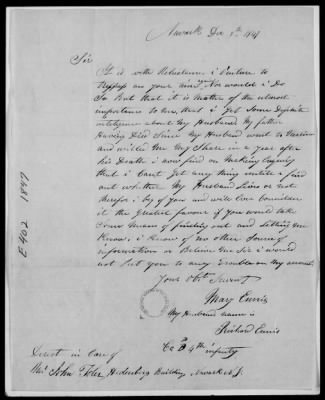 Newark Dec 1st 1847
Sir
It is with Reluctance i Venture to
Trespass on your time Nor would i Do
So But that it is Matter of the utmost
importance to me, that i get Some Definite
inteligence about My Husband My father
Having Died Since My Husband went to Mexico
and willed Me My Share in a year after
his Death i now find on Making Enquiry
that i Cant get any thing untill i find
out whether My Husband lives or not
therfor i beg of you and will Ever Consider
it the Greatest favour if you would take
Some Means of finding out and letting me
Know, i know of no other Source of
information or Believe Me Sir i would
not put you to any trouble on My account
Your Obt Servant
Mary Curris
My Husband name is
Richard Curris
Co B 4th infantry
Direct in Care of
John Hedenberg Building Newark N J.
E 402 1847